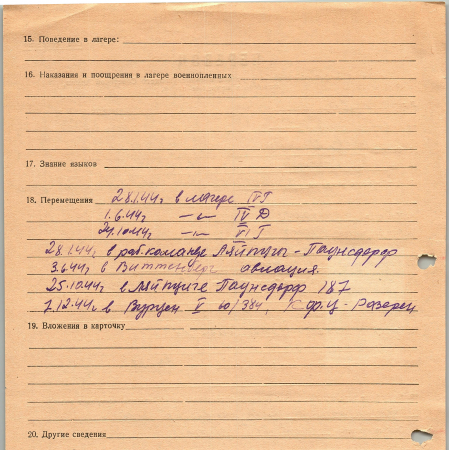 15. Поведение в лагере:
16. Наказания и поощрения в лагере военнопленных
17. Знание языков
18. Перемещения 28.1.44г. в лагере IV Г
1.6.44г. —"— IV Д
24.10.44г. —"— Г
28.1.44г. в раб. команде Ляйпциг - Паунсдорф
3.6.44г. в Виттенберг авиация.
25.10.44г. в Ляйпциге Паунсдорф 187
7.12.44г. в Вурцен
19. Вложения в карточку
20. Другие сведения